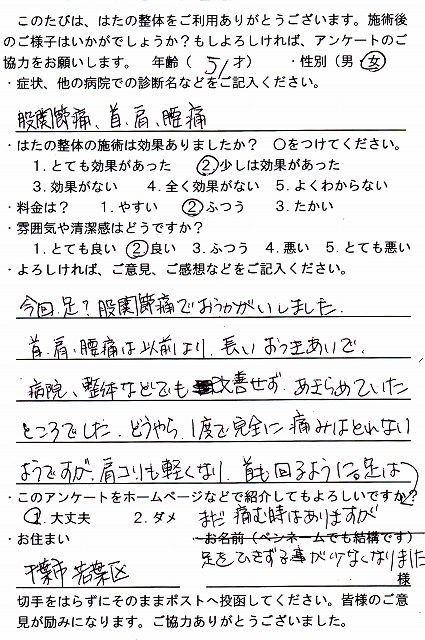 このたびは、はたの整体をご利用ありがとうございます。施術後
のご様子はいかがでしょうか？もしよろしければ、アンケートのご
協力をお願いします。　年齢（ 51 才）　・性別（男・女）
・症状、他の病院での診断名などをご記入ください。
股関節痛、首、肩、腰痛
・はたの整体の施術は効果ありましたか？　〇をつけてください。
１．とても効果があった　②少しは効果があった
３．効果がない　４．全く効果がない　５．よくわからない
・料金は？　１．やすい　②ふつう　３．たかい
・雰囲気や清潔感はどうですか？
１．とても良い　②良い　３．ふつう　４．悪い　５．とても悪い
・よろしければ、ご意見、ご感想などをご記入ください。
今回、足？股関節痛でおうかがいしました。
首、肩、腰痛は以前より、長いおつきあいで、
病院、整体などでも改善せず、あきらめていた
ところでした。どうやら、1度で完全に痛みはとれない
ようですが、肩コリも軽くなり、首も回るように。足は
・このアンケートをホームページなどで紹介してもよろしいですか？
①．大丈夫　２．ダメ　まだ痛む時はありますが
・お住まい　お名前（ペンネームでも結構です）
足をひきずる事が少なくなりました
千葉市若葉区　様
切手をはらずにそのままポストへ投函してください。皆様のご意
見が励みになります。ご協力ありがとうございました。